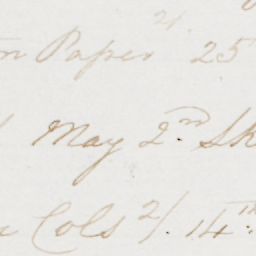 on Paper 2/. 25
May 2nd. Sk
Cols 2/. 14th.